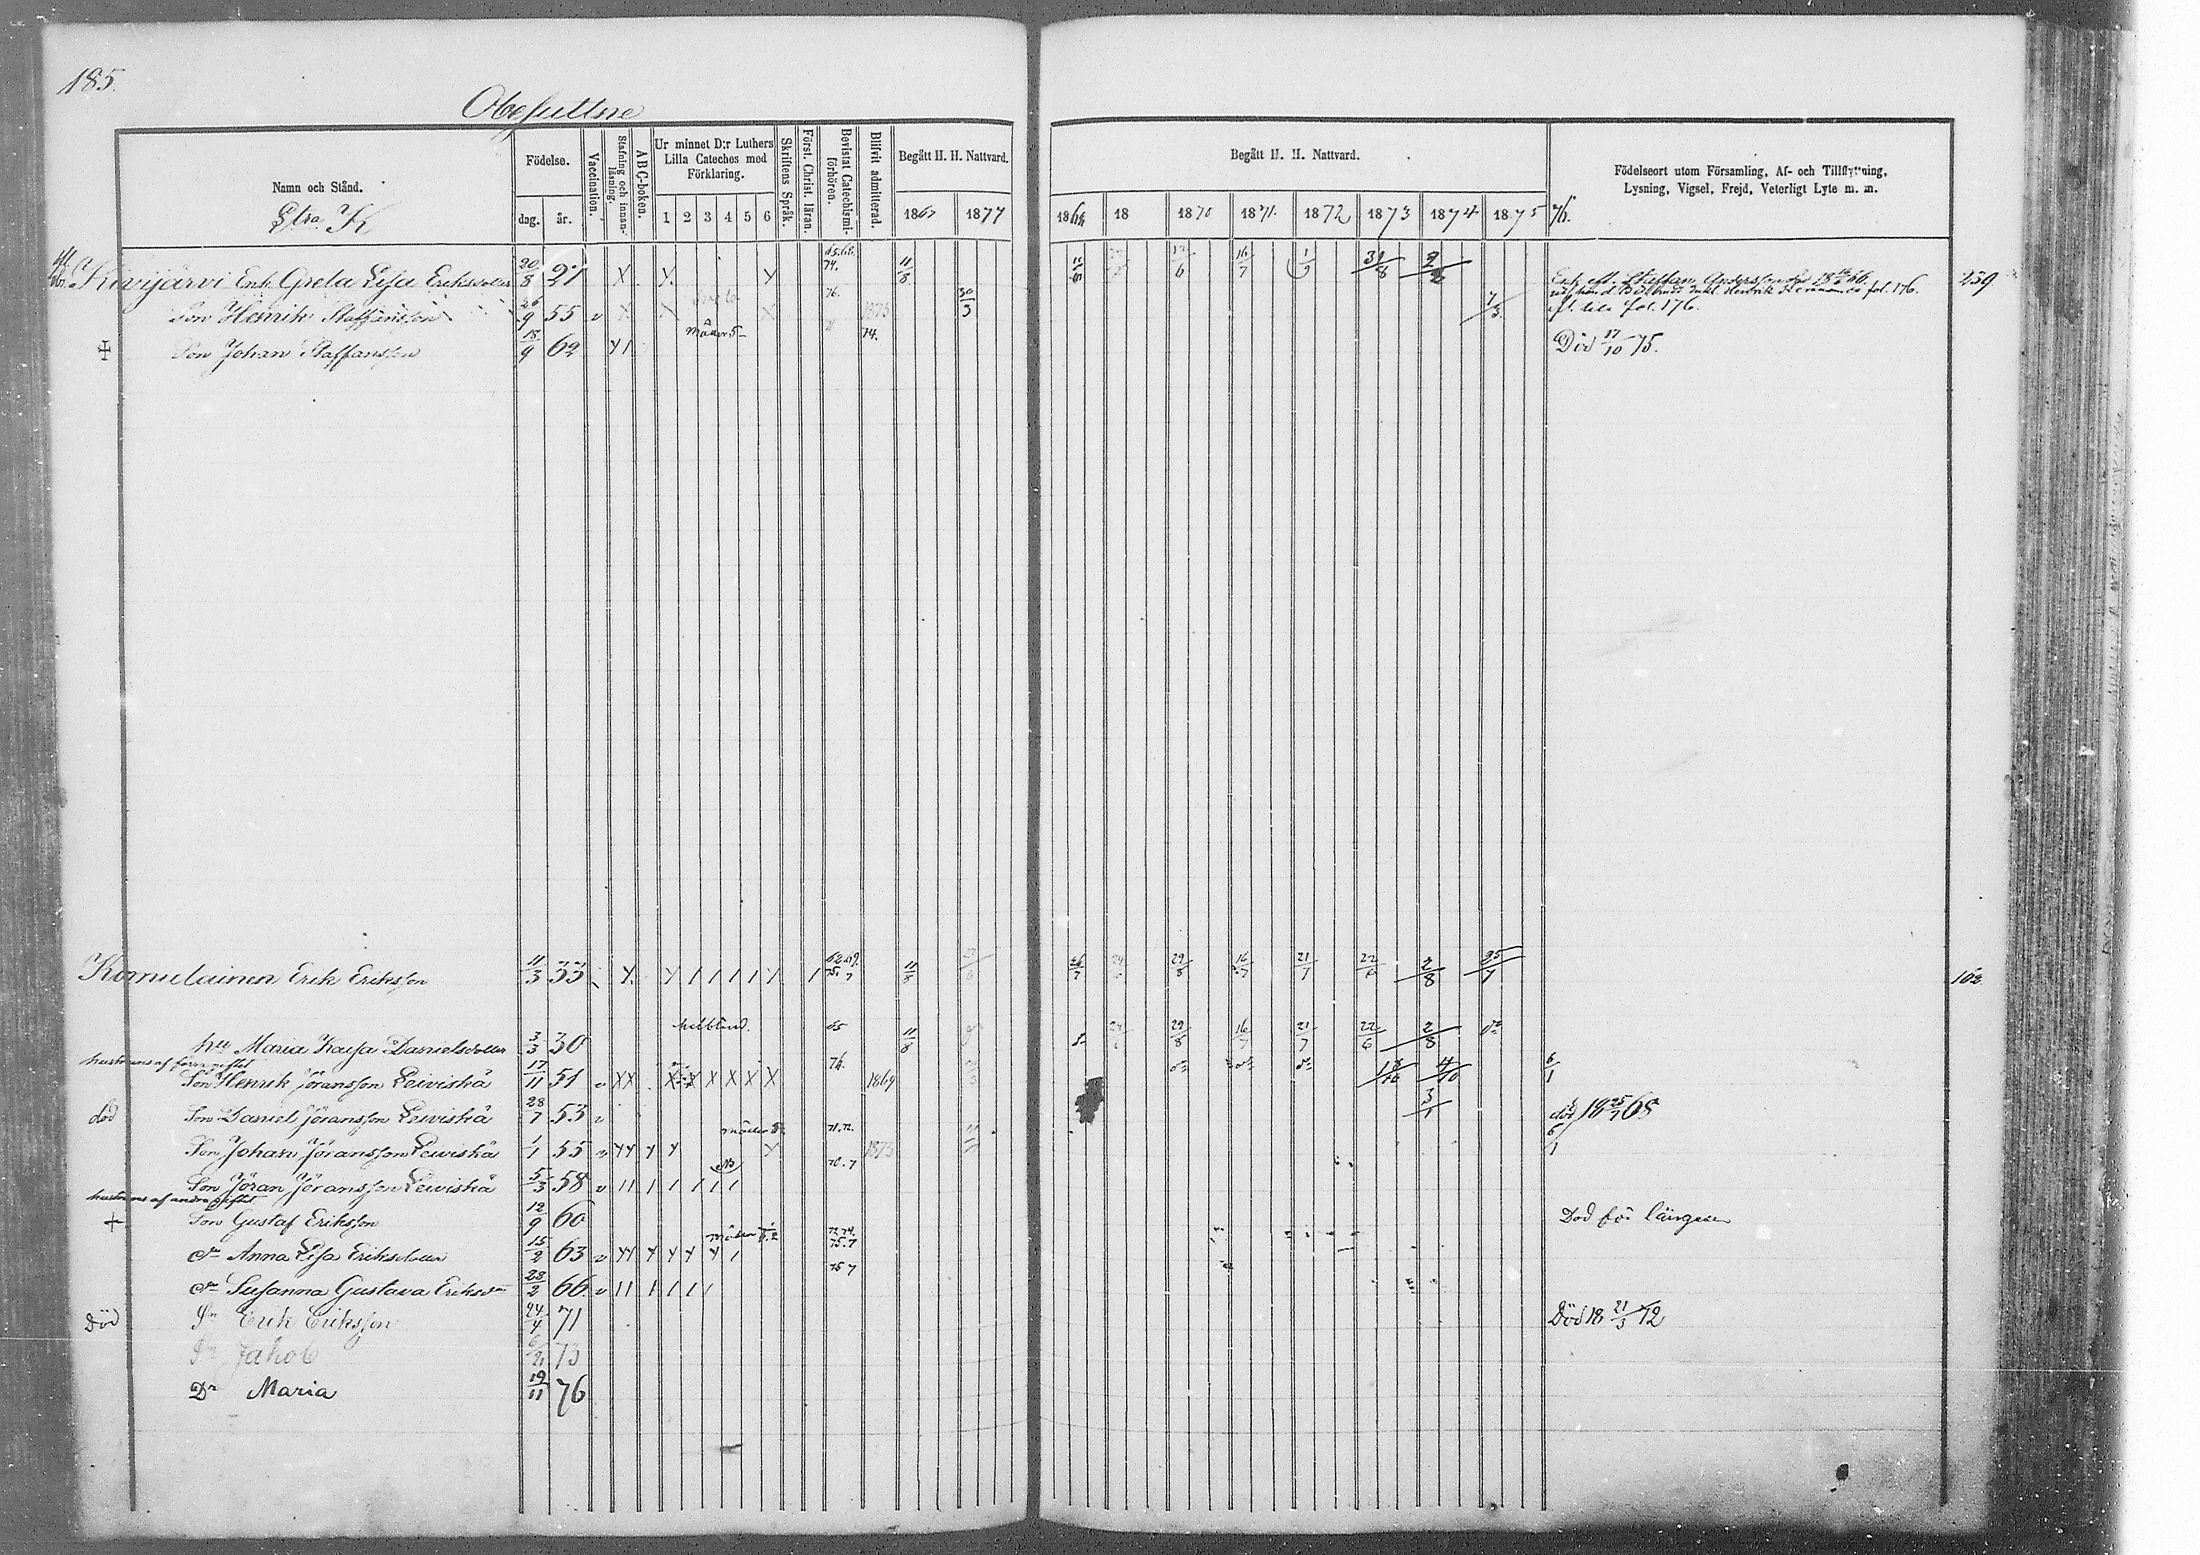 185.
Obesuttne
Namn och Stånd.
Litra K
Födelse.
dag. år.
Vaccination.
Stafning och innanläsning.
A B C-boken.
Ur minnet D:r Luthers Lilla Cateches med Förklaring.
1 2 3 4 5 6
Skriftens Språk.
Först. Christ. läran.
Bevistat Catechismiförhören.
Blifvit admitterad.
Begått H. H. Nattvard.
1867 1877
Begått H. H. Nattvard.
1868 18 1870 1871. 1872 1873 1874 1875 76.
Födelseort utom Församling, Af- och Tillflyttning,
Lysning, Vigsel, Frejd, Veterligt Lyte m. m.
Kivijärvi Enk. Greta Lisa Eriksdotter 20/8 27 X Y Y 65.68. 74. 11/8 16/7 31/8 Enk. af. Staffan Andersson död 66. fol. 176. 239
Son Henrik Staffansson 26/9 55 v X 76. 1873 30/3 7/3 fl. till fol. 176.
Son Johan Staffansson 18/9 62 Y 1 74. Död 17/10 75.
Komulainen Erik Eriksson 11/3 33 Y. Y 1 1 1 1 Y 1 75. 7 11/8 29/8 16/7 21/7 22/6 2/8 25/7 102
hu Maria Kaisa Danielsdotter 3/3 30 helblind. 65 11/8 29/8 16/7 21/7 22/6 2/8
hustruns af förra giftet
Son Henrik Jöransson Leiviskä 17/11 51 v X X X X X X X X 76. 1869 4/10 6/1
död Son Daniel Jöransson Leiviskä 28/7 53 v död 18 25/7 68
Son Johan Jöransson Leiviskä 1/1 55 v Y Y Y Y Y 71. 72. 1873 6/1
Son Jöran Jöransson Leiviskä 5/3 58 v 1 1 1 1 1 1 1 70. 7
hustruns af andra giftet
+ Son Gustaf Eriksson 12/9 60 Död för längesen
Dr Anna Lisa Eriksdotter 15/2 63 v Y Y Y Y Y Y 1 72. 74. 75. 7
Dr Susanna Gustava Eriksdr 23/2 66 v 1 1 1 1 1 1 75 7
Död Sn Erik Eriksson 24/4 71 Död 18 21/3 72
Sn Jakob 6/2 73
Dr Maria 19/11 76